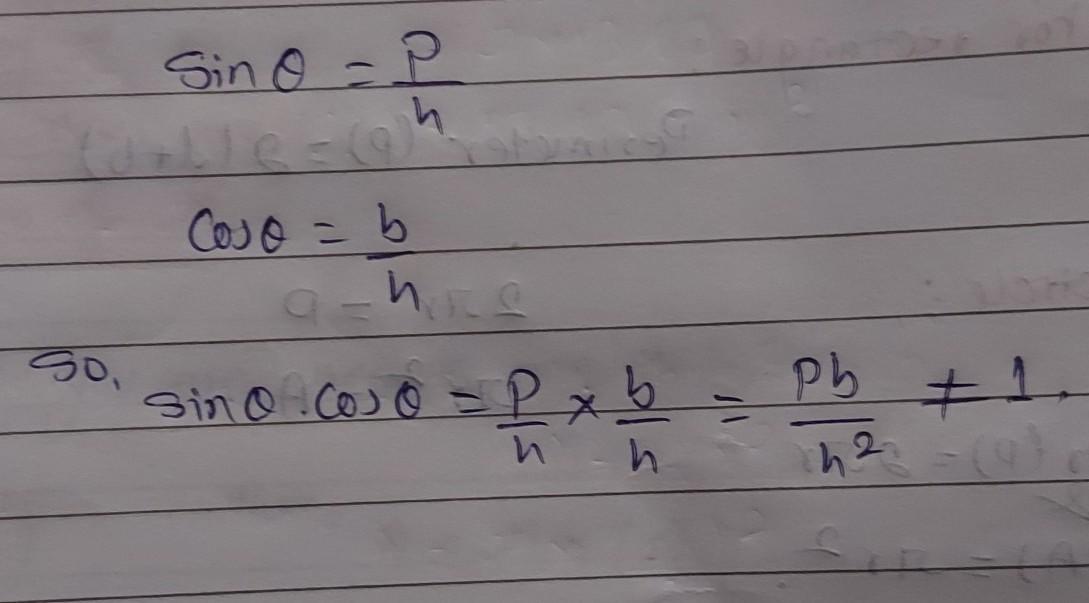 sin θ = P/h
cos θ = b/h
So,
sin θ . cos θ = P/h × b/h = Pb/h² ≠ 1.